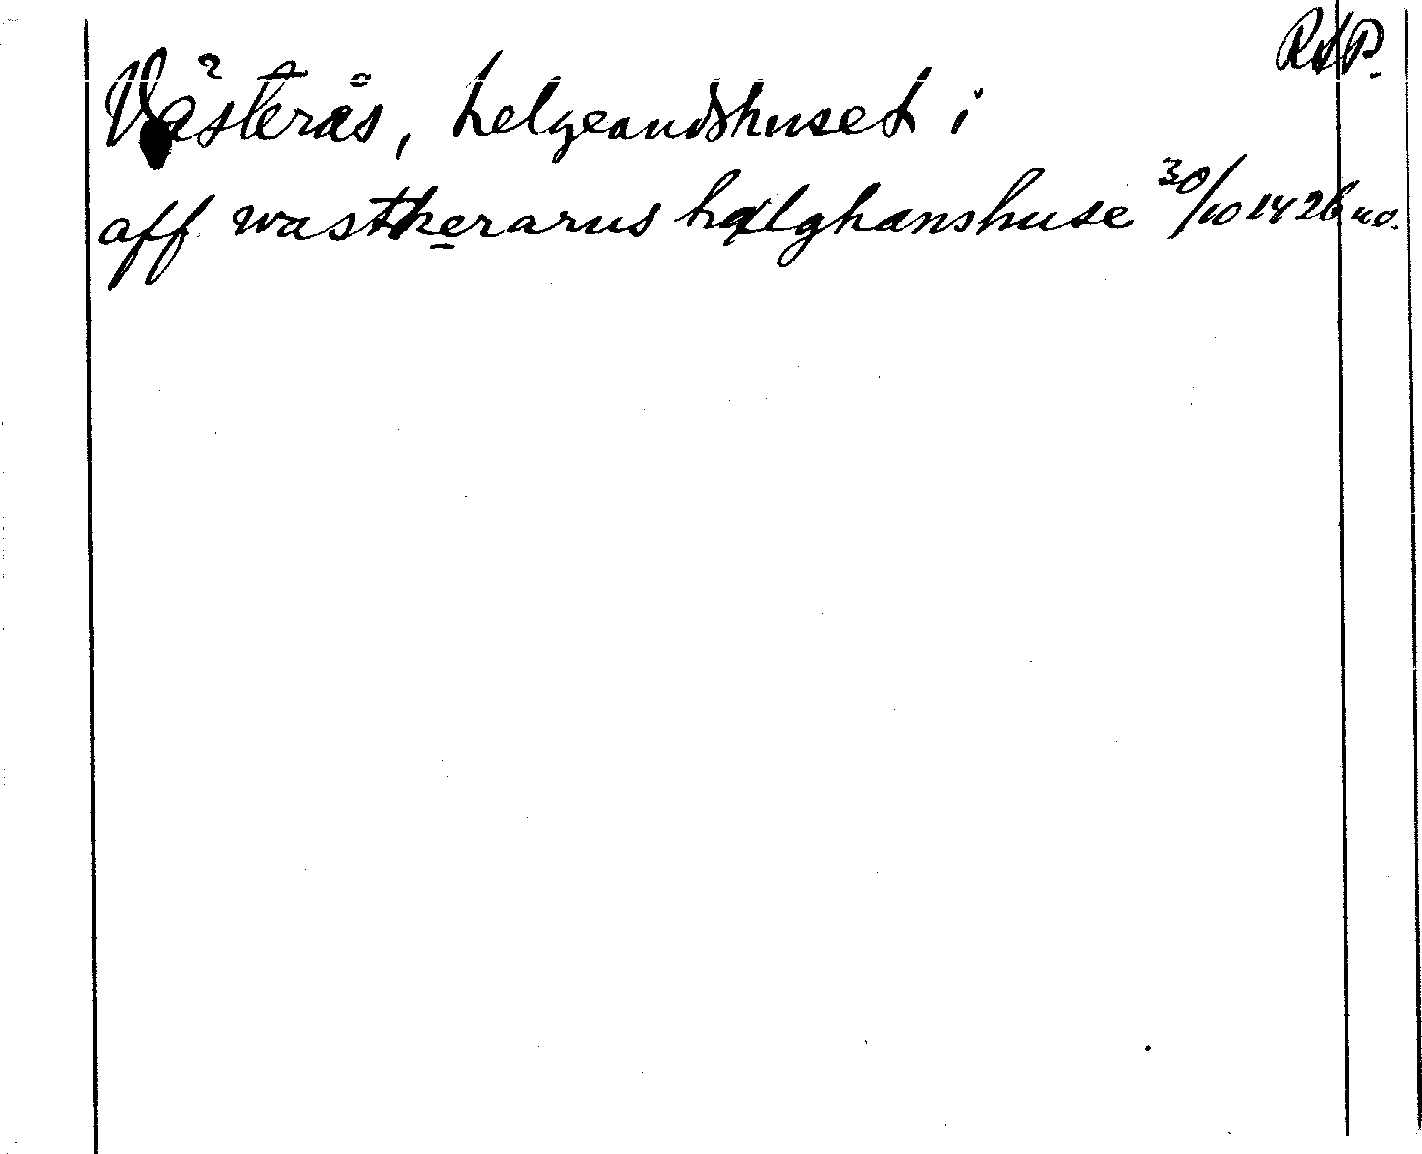 RAP.
Västerås, helgeandshuset i
aff wastherarus hælghanshuse 30/10 1426 no.